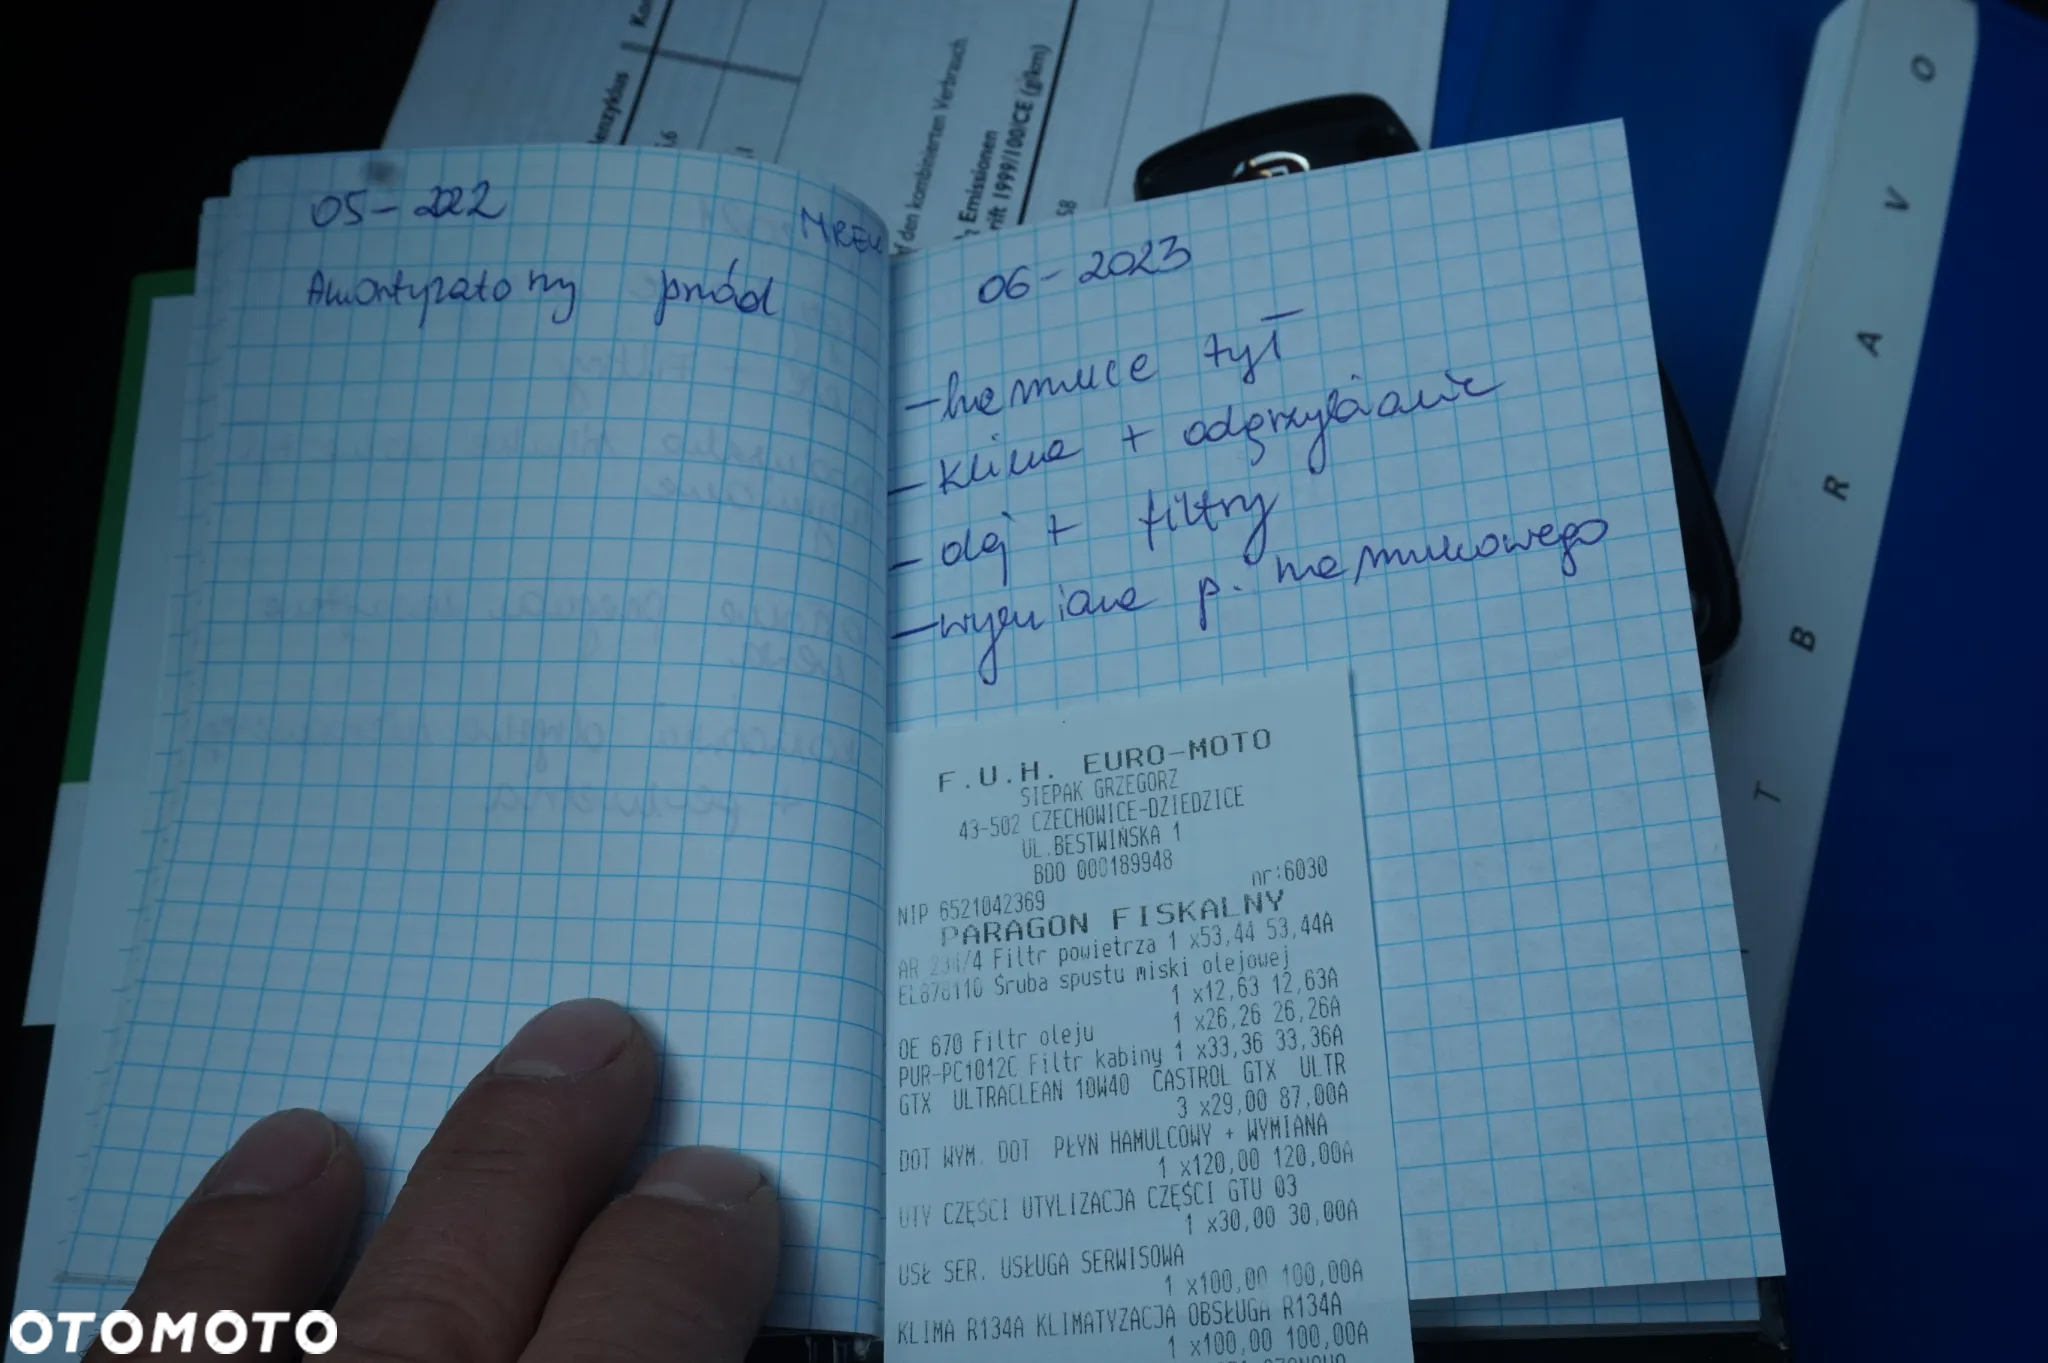 05-2022
MREW
Amortyzatory przód
06-2023
- hamulce tył
- klima + odgrzybianie
- olej + filtry
- wymiana p. hamulcowego
F.U.H. EURO-MOTO
SIEPAK GRZEGORZ
43-502 CZECHOWICE-DZIEDZICE
UL.BESTWIŃSKA 1
BDO 000189948
NIP 6521042369 nr:6030
PARAGON FISKALNY
AR 234/4 Filtr powietrza 1 x53,44 53,44A
EL878110 Śruba spustu miski olejowej
1 x12,63 12,63A
OE 670 Filtr oleju 1 x26,26 26,26A
PUR-PC1012C Filtr kabiny 1 x33,36 33,36A
GTX ULTRACLEAN 10W40 CASTROL GTX ULTR
3 x29,00 87,00A
DOT WYM. DOT PŁYN HAMULCOWY + WYMIANA
1 x120,00 120,00A
UTY CZĘŚCI UTYLIZACJA CZĘŚCI GTU 03
1 x30,00 30,00A
USŁ SER. USŁUGA SERWISOWA
1 x100,00 100,00A
KLIMA R134A KLIMATYZACJA OBSŁUGA R134A
1 x100,00 100,00A
den kombinierten Verbrauch
Emissionen
1999/100/CE (g/km)
58
T B R A V O
OTOMOTO